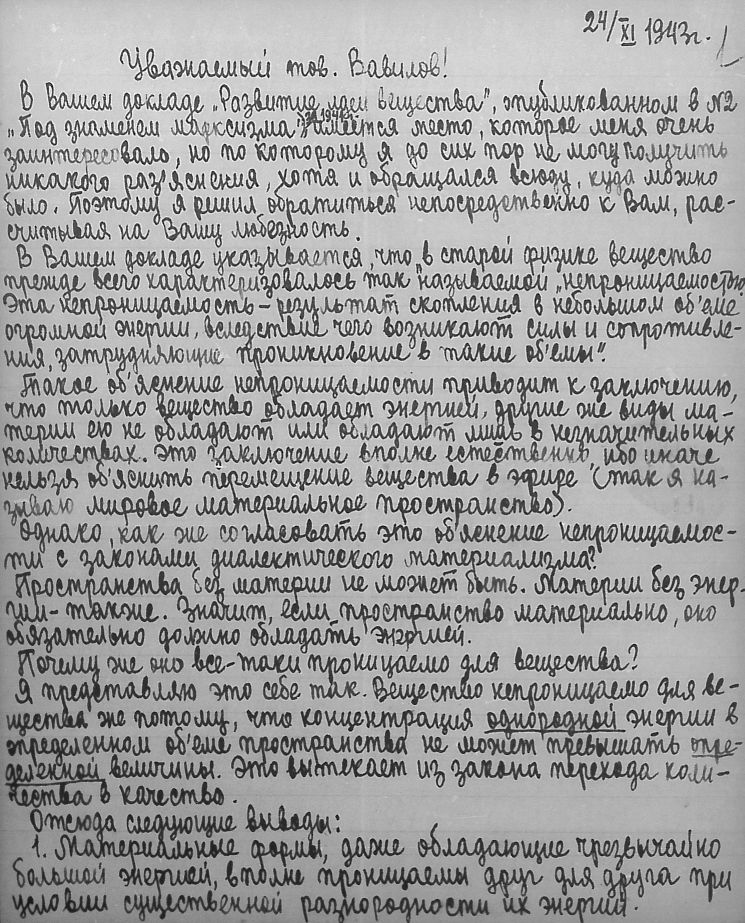 24/XI 1943г.
1
Уважаемый тов. Вавилов!
В Вашем докладе „Развитие идеи вещества", опубликованном в №2
„Под знаменем марксизма" за 1941г. имеется место, которое меня очень
заинтересовало, но по которому я до сих пор не могу получить
никакого раз'яснения, хотя и обращался всюду, куда можно
было. Поэтому я решил обратиться непосредственно к Вам, рас-
считывая на Вашу любезность.
В Вашем докладе указывается, что „в старой физике вещество
прежде всего характеризовалось так называемой „непроницаемостью
Эта непроницаемость – результат скопления в небольшом об'еме
огромной энергии, вследствие чего возникают силы и сопротивле-
ния, затрудняющие проникновение в такие об'емы".
Такое об'яснение непроницаемости приводит к заключению,
что только вещество обладает энергией, другие же виды ма-
терии ею не обладают или обладают лишь в незначительных
количествах. Это заключение вполне естественно, ибо иначе
нельзя об'яснить перемещение вещества в эфире (так я на-
зываю мировое материальное пространство).
Однако, как же согласовать это об'яснение непроницаемос-
ти с законами диалектического материализма?
Пространства без материи не может быть. Материи без энер-
гии – также. Значит, если пространство материально, оно
обязательно должно обладать энергией.
Почему же оно все-таки проницаемо для вещества?
Я представляю это себе так. Вещество непроницаемо для ве-
щества же потому, что концентрация однородной энергии в
определенном об'еме пространства не может превышать опре-
деленной величины. Это вытекает из закона перехода коли-
чества в качество.
Отсюда следующие выводы:
1. Материальные формы, даже обладающие чрезвычайно
большой энергией, вполне проницаемы друг для друга при
условии существенной разнородности их энергий.